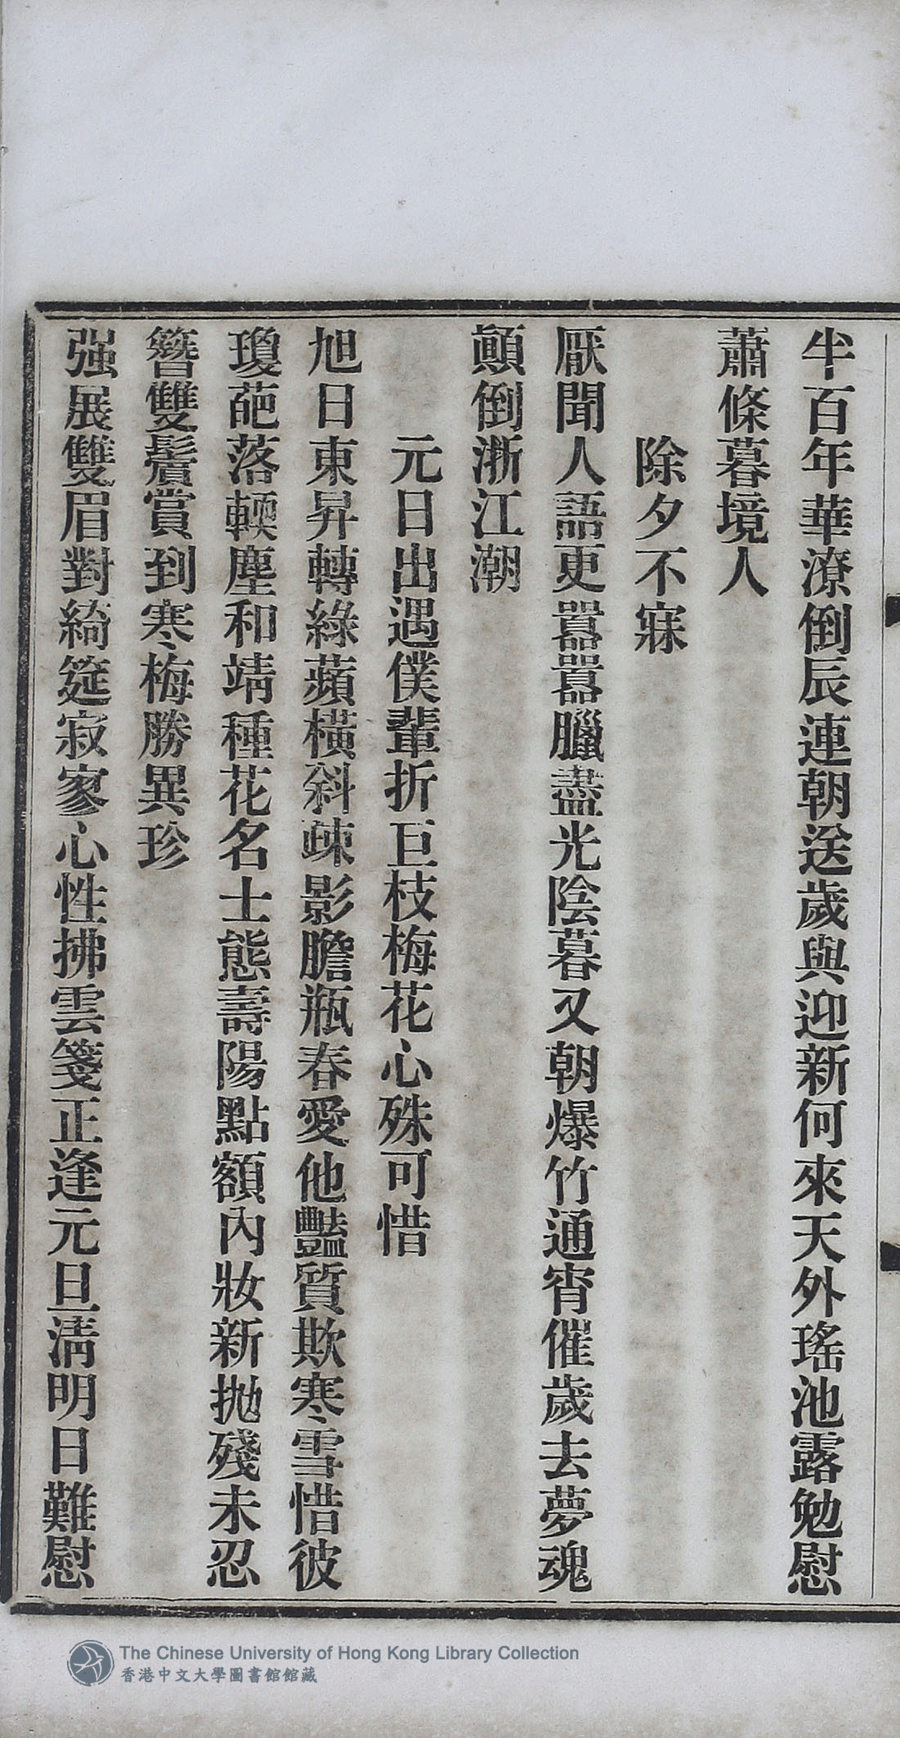 半百年華潦倒辰連朝送歲與迎新何來天外瑤池露勉慰
蕭條暮境人
除夕不寐
厭聞人語更囂囂臘盡光陰暮又朝爆竹通宵催歲去夢魂
顛倒浙江潮
元日出遇僕輩折巨枝梅花心殊可惜
旭日東昇轉綠蘋橫斜疎影膽瓶春愛他豔質欺寒雪惜彼
瓊葩落輭塵和靖種花名士態壽陽點額內妝新拋殘未忍
簪雙鬢賞到寒梅勝異珍
强展雙眉對綺筵寂寥心性拂雲箋正逢元旦淸明日難慰
The Chinese University of Hong Kong Library Collection
香港中文大學圖書館館藏